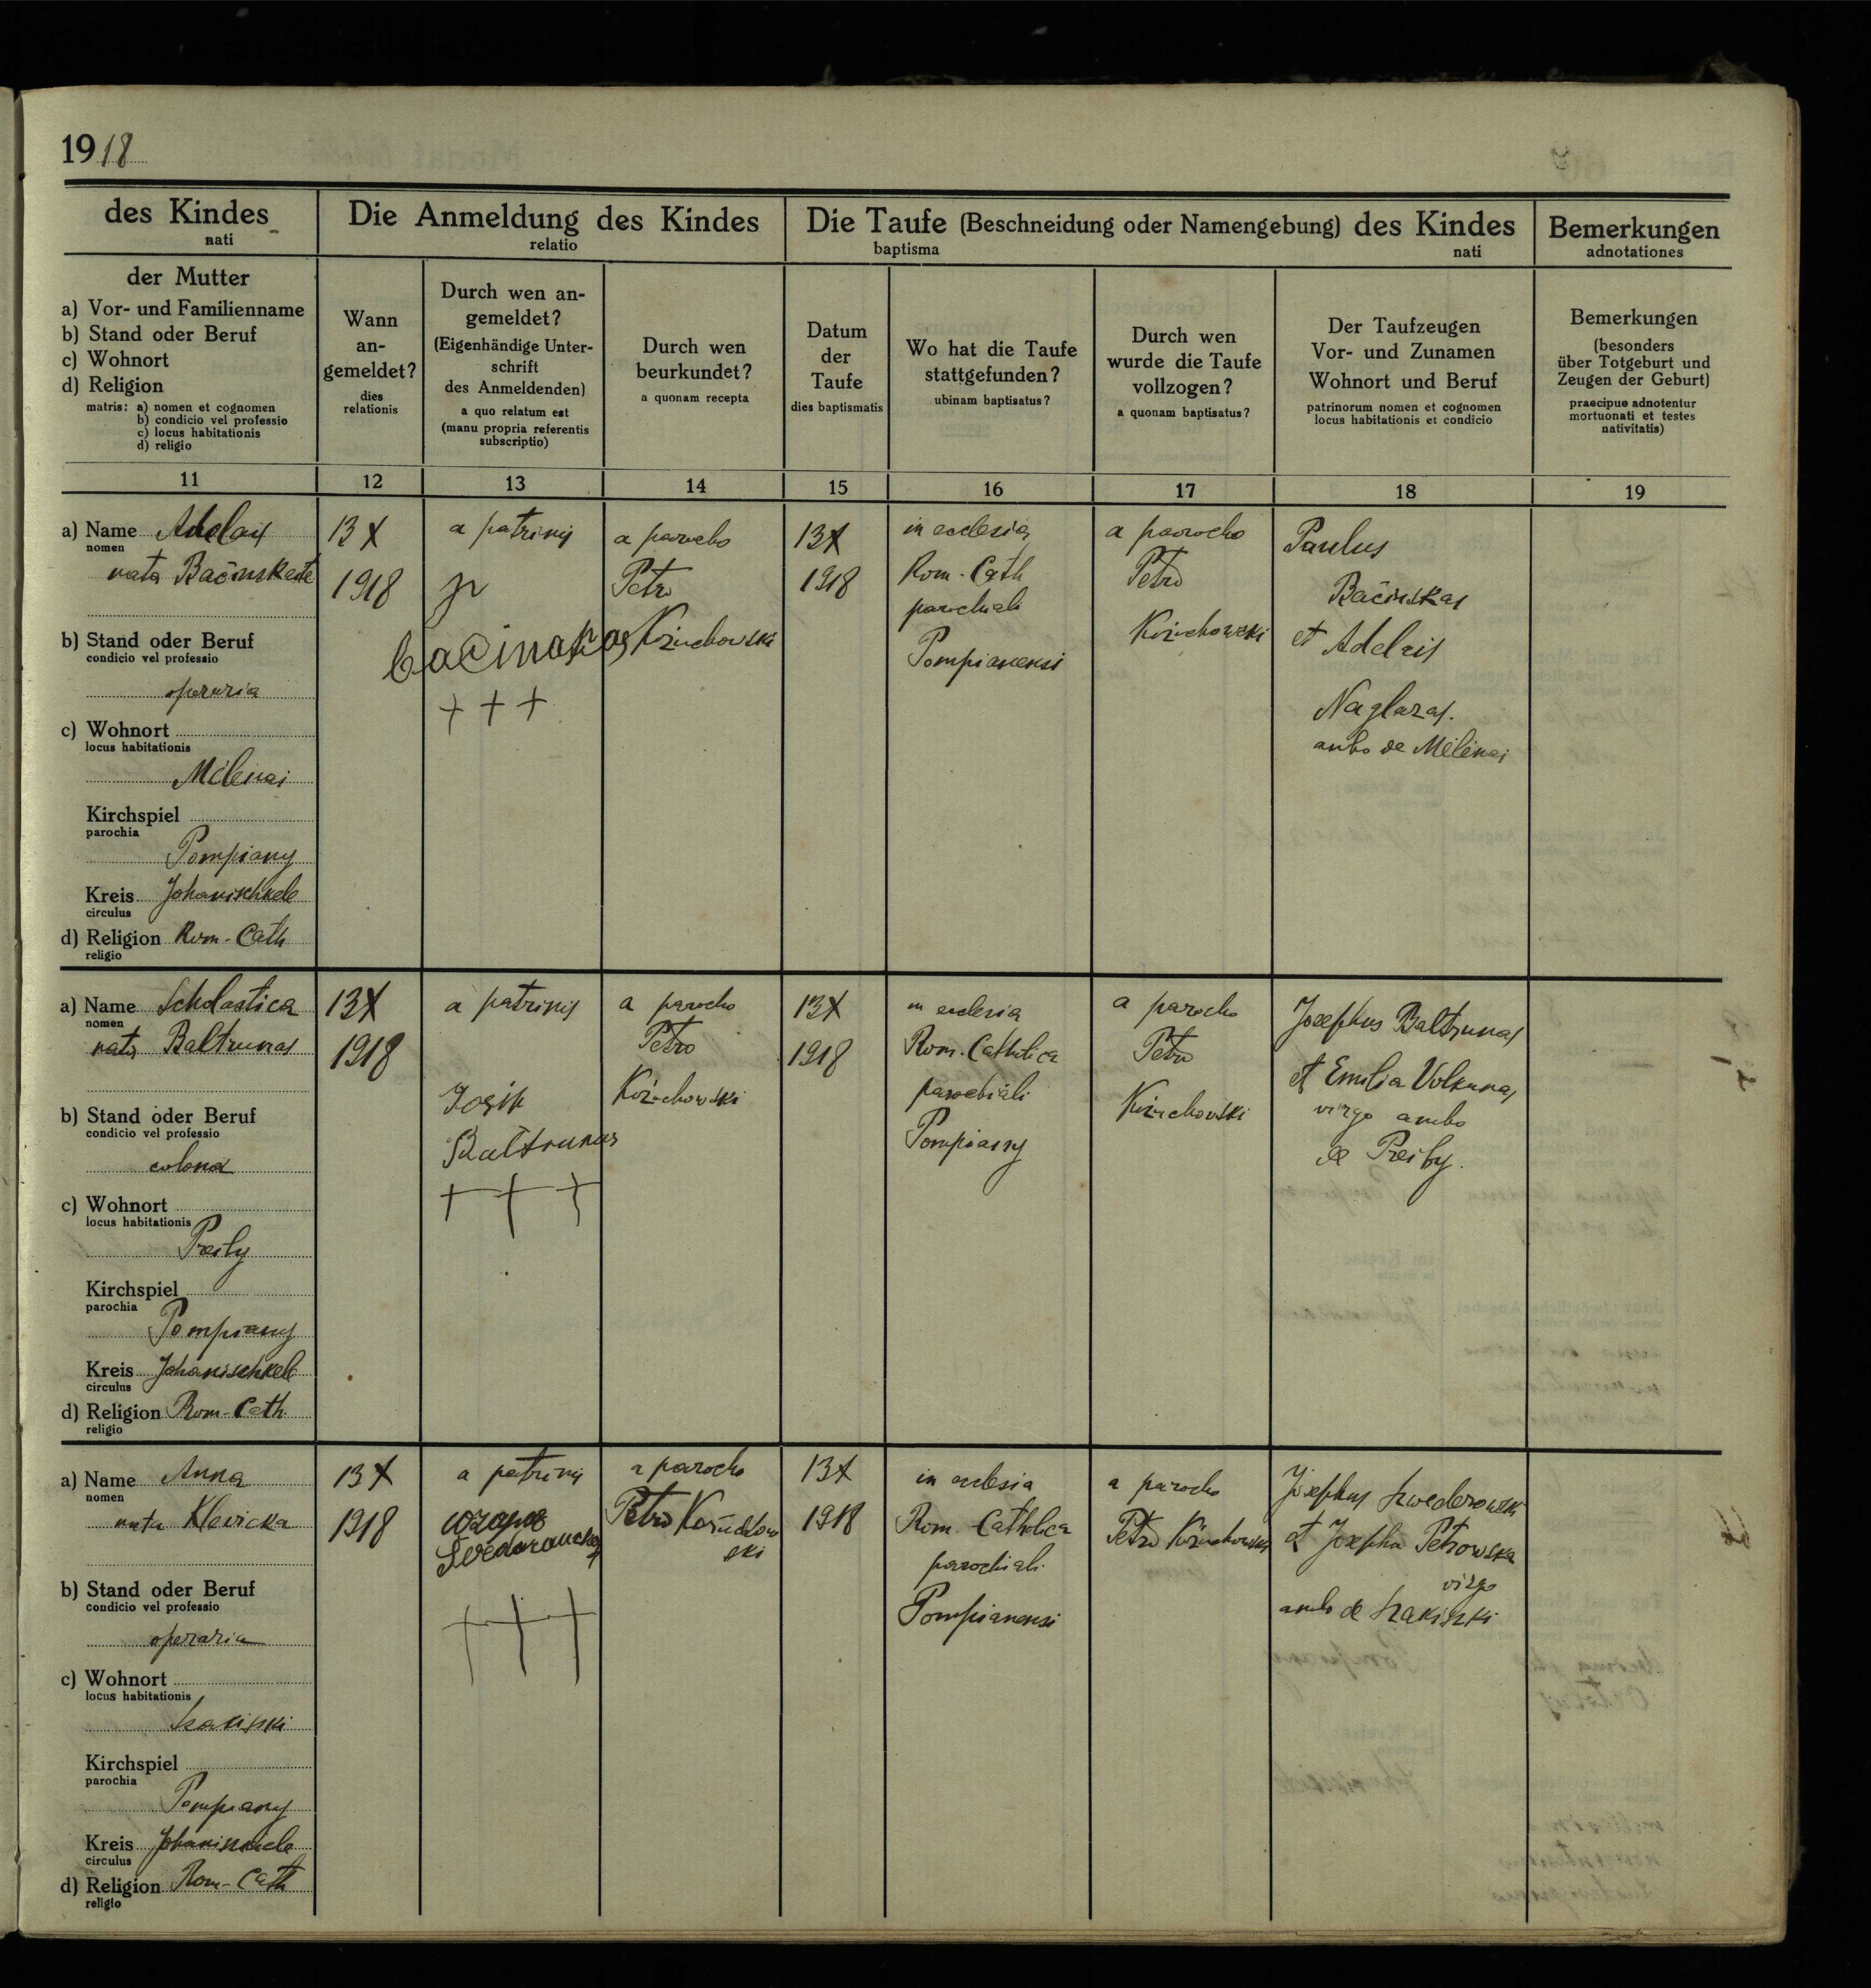 1918
des Kindes
nati
Die Anmeldung des Kindes
relatio
Die Taufe (Beschneidung oder Namengebung) des Kindes
baptisma nati
Bemerkungen
adnotationes
der Mutter
a) Vor- und Familienname
b) Stand oder Beruf
c) Wohnort
d) Religion
matris: a) nomen et cognomen
b) condicio vel professio
c) locus habitationis
d) religio
Wann
an-
gemeldet?
dies
relationis
Durch wen an-
gemeldet?
(Eigenhändige Unter-
schrift
des Anmeldenden)
a quo relatum est
(manu propria referentis
subscriptio)
Durch wen
beurkundet?
a quonam recepta
Datum
der
Taufe
dies baptismatis
Wo hat die Taufe
stattgefunden?
ubinam baptisatus?
Durch wen
wurde die Taufe
vollzogen?
a quonam baptisatus?
Der Taufzeugen
Vor- und Zunamen
Wohnort und Beruf
patrinorum nomen et cognomen
locus habitationis et condicio
Bemerkungen
(besonders
über Totgeburt und
Zeugen der Geburt)
praecipue adnotentur
mortuonati et testes
nativitatis)
11
12
13
14
15
16
17
18
19
a) Name Adelais
nomen
nata Bačinskaite
b) Stand oder Beruf
condicio vel professio
operaria
c) Wohnort
locus habitationis
Mėlėnai
Kirchspiel
parochia
Pompiany
Kreis Johanischkele
circulus
d) Religion Rom-Cath
religio
13 X
1918
a patrinis
+ + +
a parocho
Petro
Kožuchowski
13X
1918
in ecclesia
Rom-Cath
parochiali
Pompianensi
a parocho
Petro
Kožuchowski
Paulus
Bačinskas
et Adelais
Naglazas.
ambo de Mėlėnai
a) Name Scholastica
nomen
nata Baltrunas
b) Stand oder Beruf
condicio vel professio
colona
c) Wohnort
locus habitationis
Kirchspiel
parochia
Pompiany
Kreis Johanischkele
circulus
d) Religion Rom-Cath
religio
13X
1918
a patrinis
Baltrunas
+ + +
a parocho
Petro
Kožuchowski
13X
1918
in ecclesia
Rom. Catholica
parochiali
Pompiany
a parocho
Petro
Kožuchowski
Josephus Baltrunas
et Emilia Volkunas
virgo ambo
de
a) Name Anna
nomen
nata Klevicka
b) Stand oder Beruf
condicio vel professio
operaria
c) Wohnort
locus habitationis
Kirchspiel
parochia
Pompiany
Kreis Johanischkele
circulus
d) Religion Rom-Cath
religio
13X
1918
a patrinis
+ + +
a parocho
Petro Kožuchow
ski
13X
1918
in eclesia
Rom. Catholica
parochiali
Pompianensi
a parocho
Petro Kožuchowski
Josephus Szwederowski
et Josepha Petrowska
virgo
ambo de Szakiszki